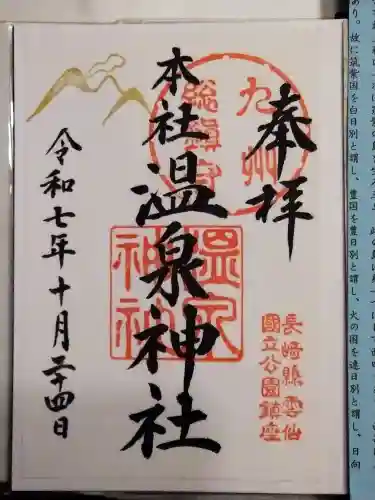 奉拝
九州
総鎮守
長崎縣雲仙
國立公園鎮座
本社温泉神社
令和七年十月二十四日
あり。故に筑紫国を白日別と謂し、豊国を豊日別と謂し、火の国を速日別と謂し、日向